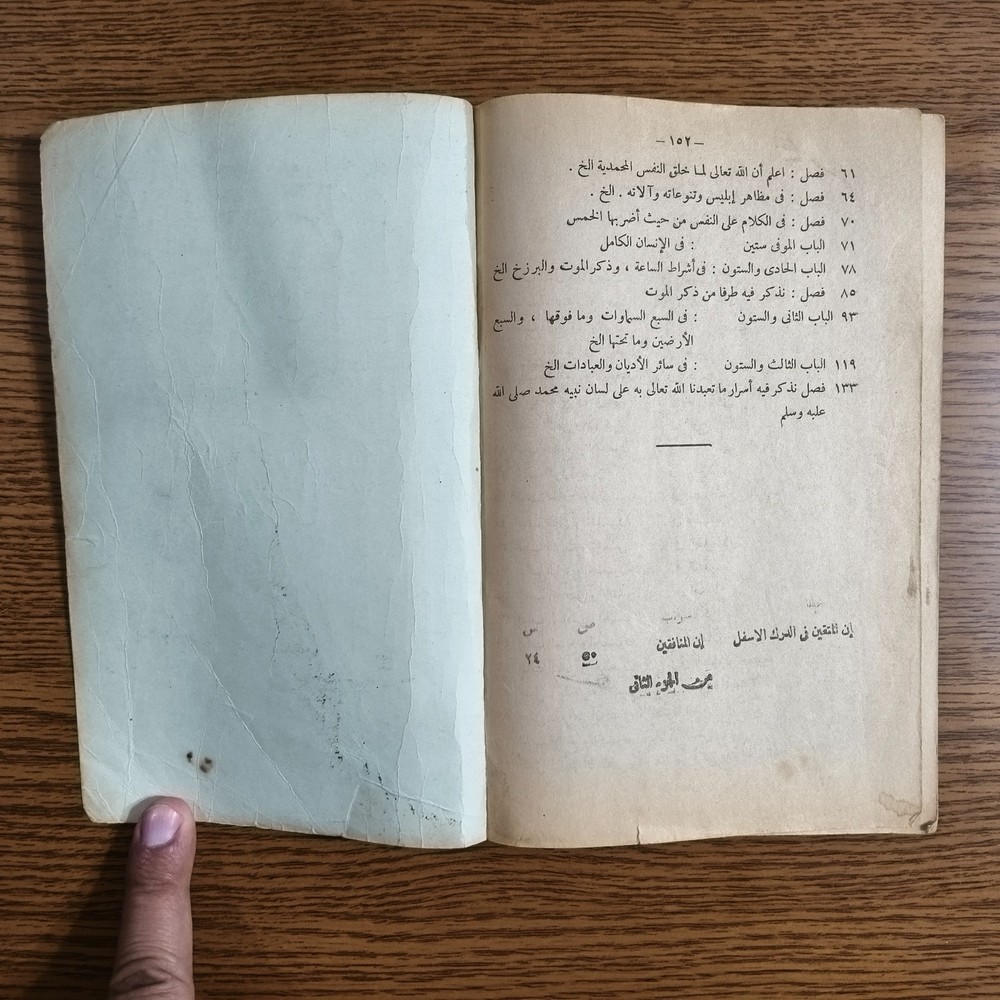 — ١٥٢ —
٦١ فصل : اعلم أن الله تعالى لما خلق النفس المحمدية الخ .
٦٤ فصل : فى مظاهر إبليس وتنوعاته وآلاته . الخ .
٧٠ فصل : فى الكلام على النفس من حيث أضربها الخمس
٧١ الباب الموفى ستين : فى الإنسان الكامل
٧٨ الباب الحادى والستون : فى أشراط الساعة ، وذكر الموت والبرزخ الخ
٨٥ فصل : نذكر فيه طرفا من ذكر الموت
٩٣ الباب الثانى والستون : فى السبع السماوات وما فوقها ، والسبع
الأرضين وما تحتها الخ
١١٩ الباب الثالث والستون : فى سائر الأديان والعبادات الخ
١٣٣ فصل نذكر فيه أسرار ما تعبدنا الله تعالى به على لسان نبيه محمد صلى الله
عليه وسلم
ص س
إن المتقين فى الدرك الاسفل إن المنافقين ٥٠ ٢٤
الجزء الثانى